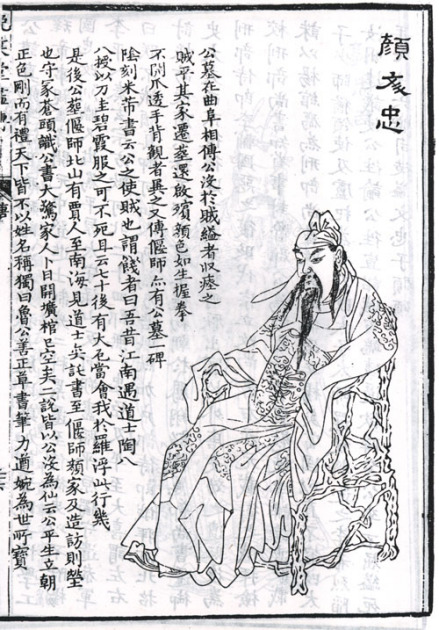 顏文忠
公墓在曲阜相傳公沒於賊縊者收瘞之
賊平其家遷葬還啟殯顏色如生握拳
不開爪透手背觀者異之又傳偃師亦有公墓一碑
陰刻米芾書云公之使賊也謂餞者曰吾昔江南遇道士陶八
八授以刀圭碧霞服之可不死且云七十後有大厄當會我於羅浮此行幾
是後公葬偃師北山有賈人至南海見道士奕託書至偃師顏家及造訪則塋
也守冢蒼頭識公書大驚家人卜日開壙棺已空矣二說皆以公沒為仙云公平生立朝
正色剛而有禮天下皆不以姓名稱獨曰魯公善正草書筆力遒婉為世所寶
晚笑堂畫傳
唐